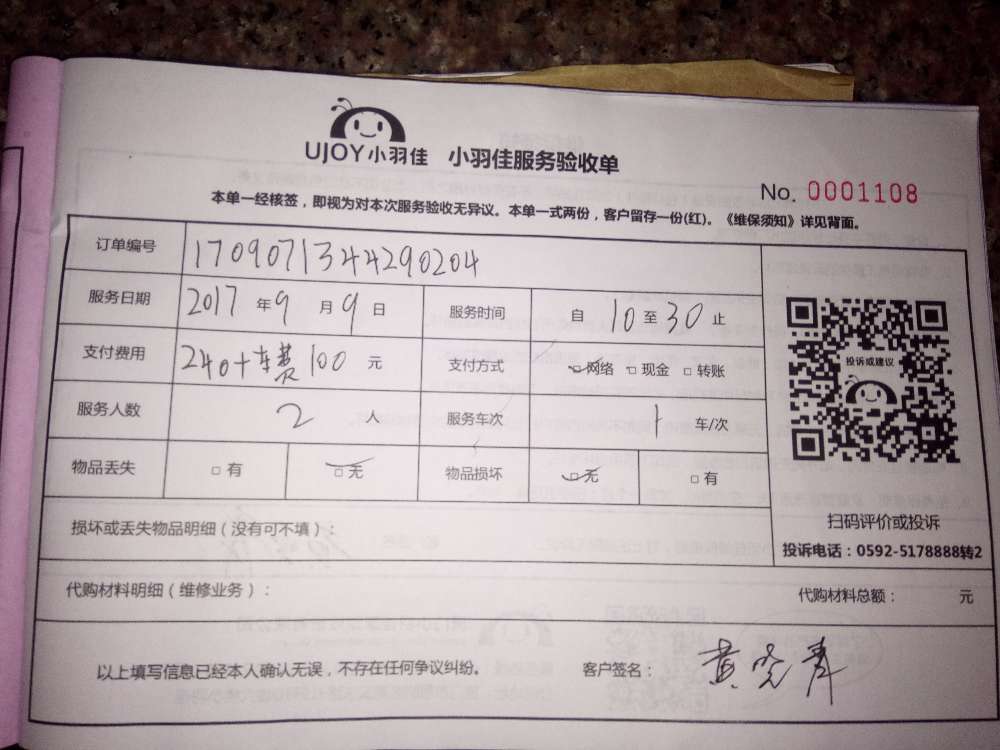 UJOY小羽佳 小羽佳服务验收单
No. 0001108
本单一经核签，即视为对本次服务验收无异议。本单一式两份，客户留存一份(红)。《维保须知》详见背面。
订单编号 1709071344290204
服务日期 2017 年 9 月 9 日 服务时间 自 10 至 30 止
支付费用 240+车费100 元 支付方式 □网络 □现金 □转账
投诉或建议
服务人数 2 人 服务车次 1 车/次
物品丢失 □有 □无 物品损坏 □无 □有
扫码评价或投诉
损坏或丢失物品明细（没有可不填）：
投诉电话：0592-5178888转2
代购材料明细（维修业务）： 代购材料总额： 元
以上填写信息已经本人确认无误，不存在任何争议纠纷。 客户签名： 黄